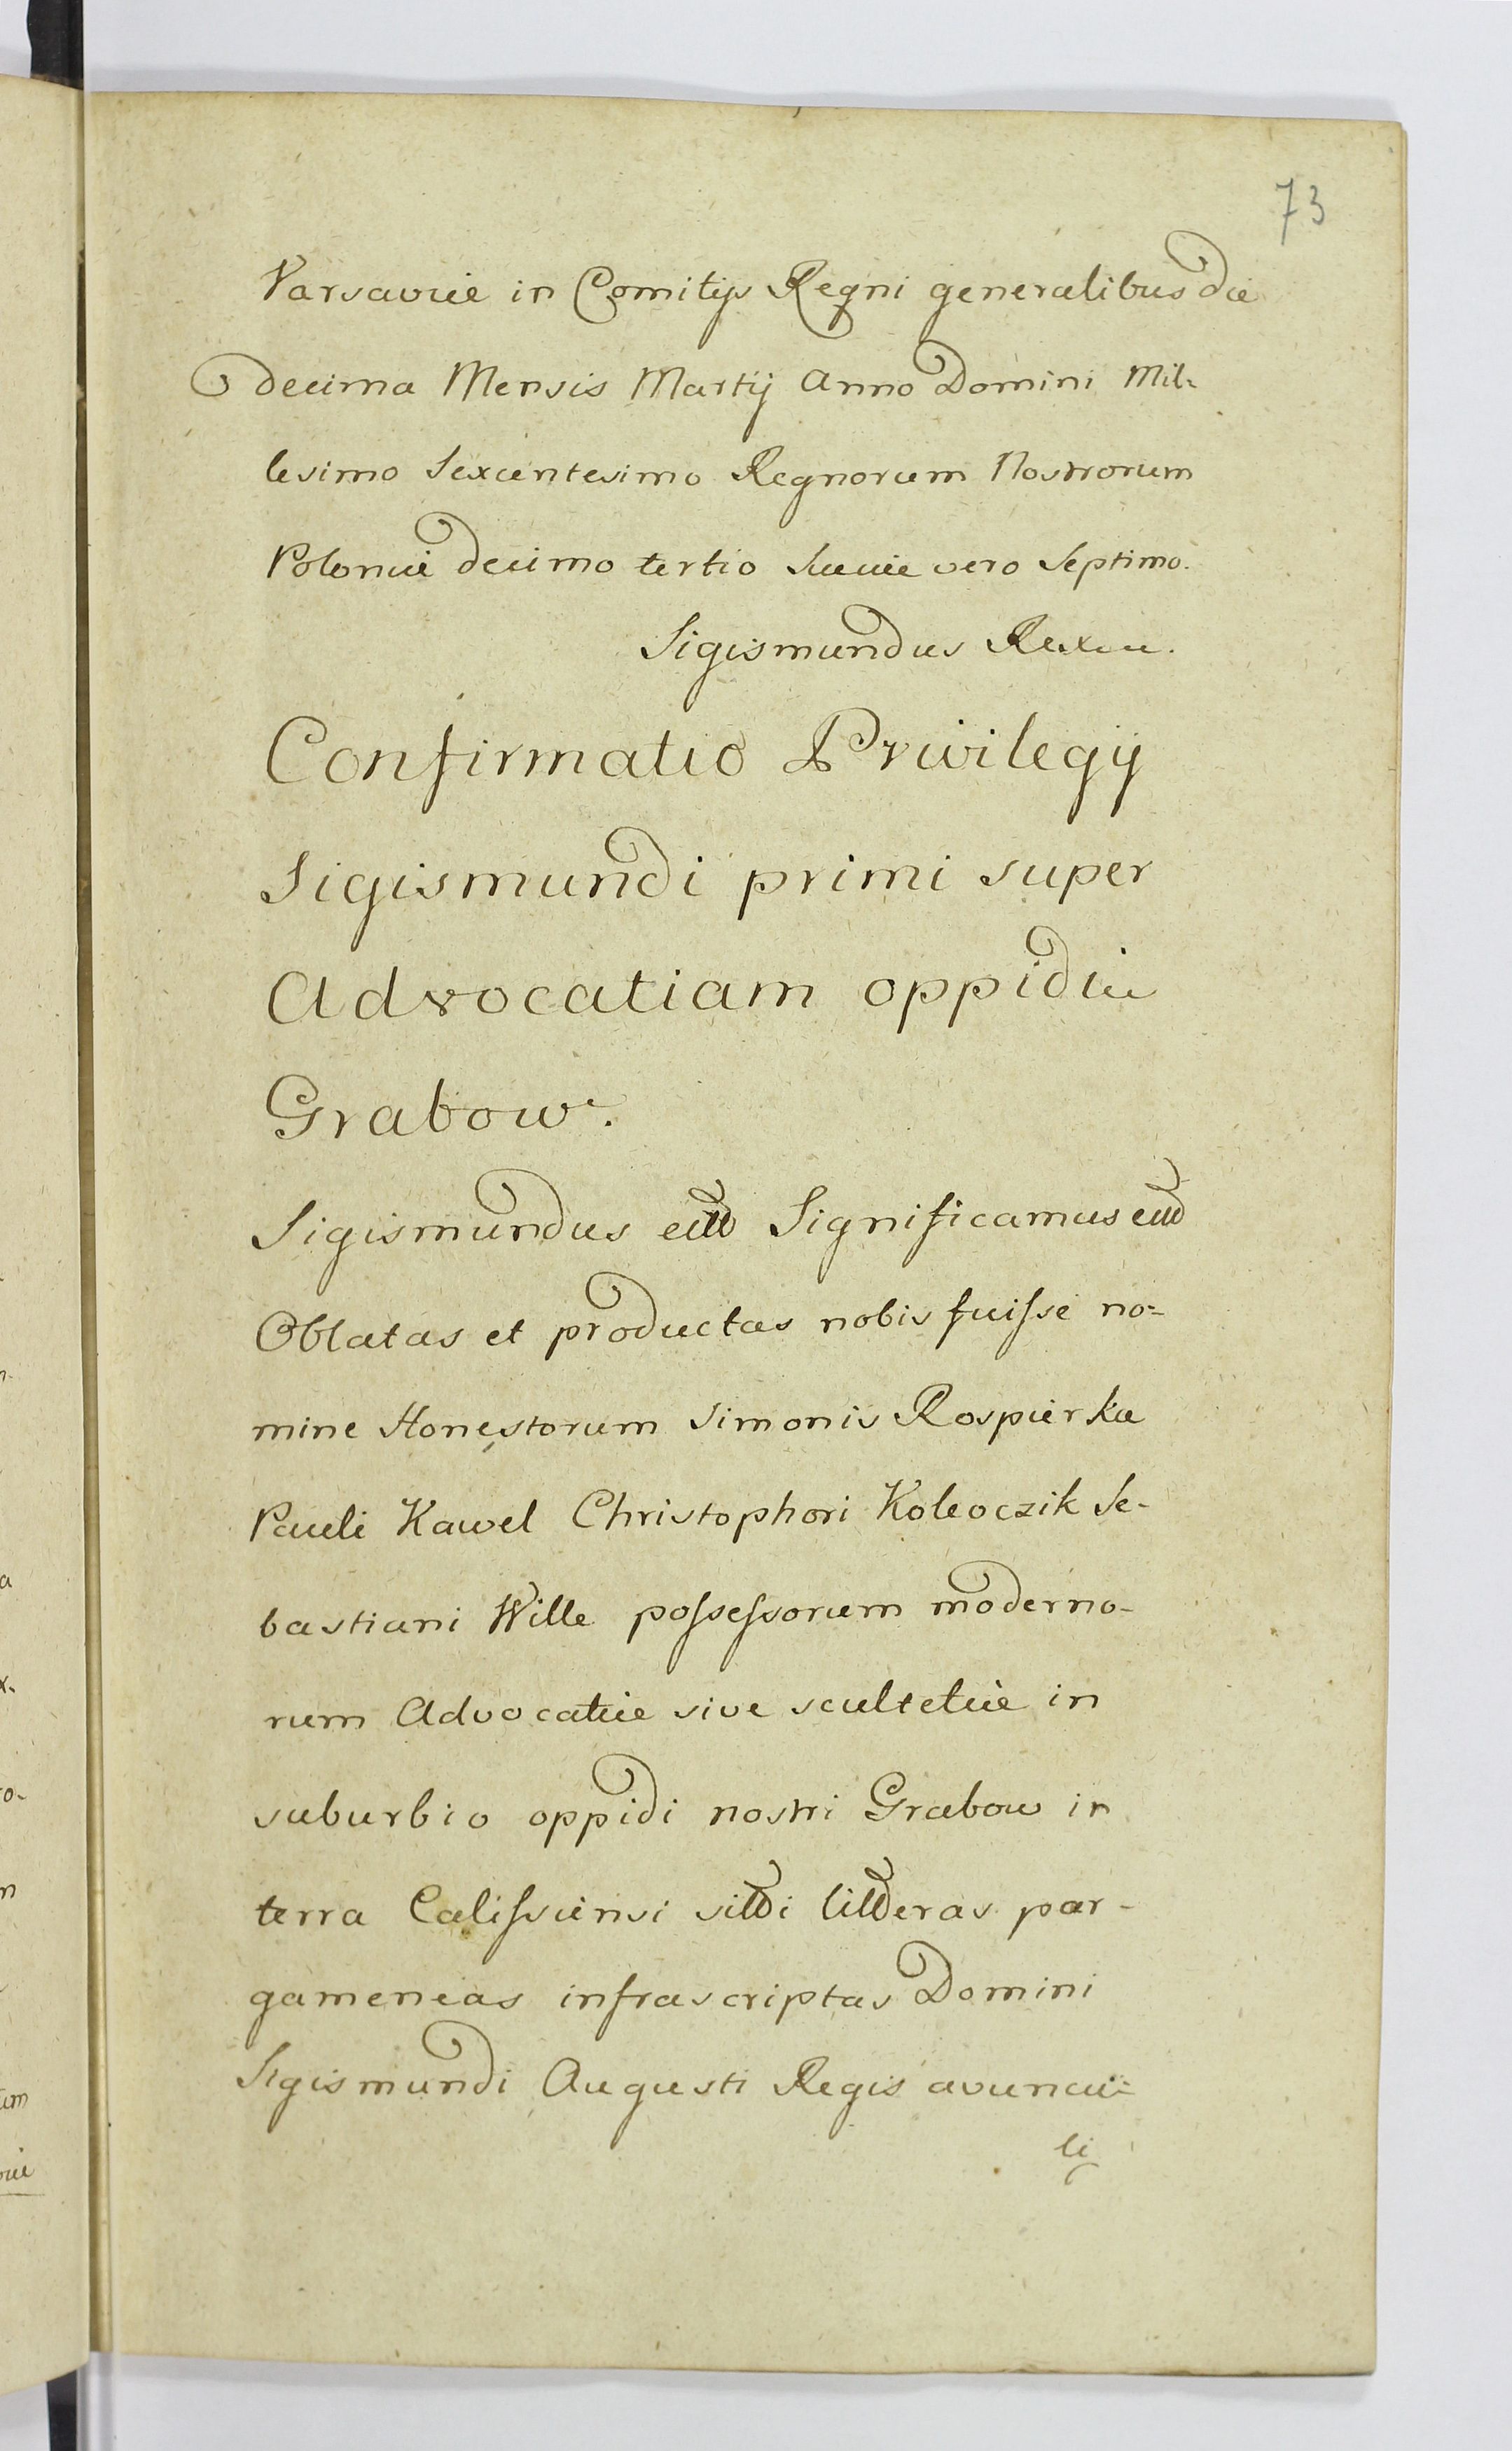 73
Varsaviæ in Comitijs Regni generalibus die
decima Mensis Martij Anno Domini Mil-
lesimo Sexcentesimo Regnorum Nostrorum
Poloniæ decimo tertio Sueciæ vero Septimo.
Sigismundus Rex
Confirmatio Privilegij
Sigismundi primi super
Advocatiam oppidi
Grabow.
Sigismundus ett Significamus ett
Oblatas et productas nobis fuisse no=
mine Honestorum Simonis Rospierka
Pauli Kawel Christophori Koleoczik Se-
bastiani Wille possessorum moderno-
rum Advocatiæ sive scultetiæ in
suburbio oppidi nostri Grabow in
terra Calissiensi sitti litteras par-
gameneas infrascriptas Domini
Sigismundi Augusti Regis avuncu=
li